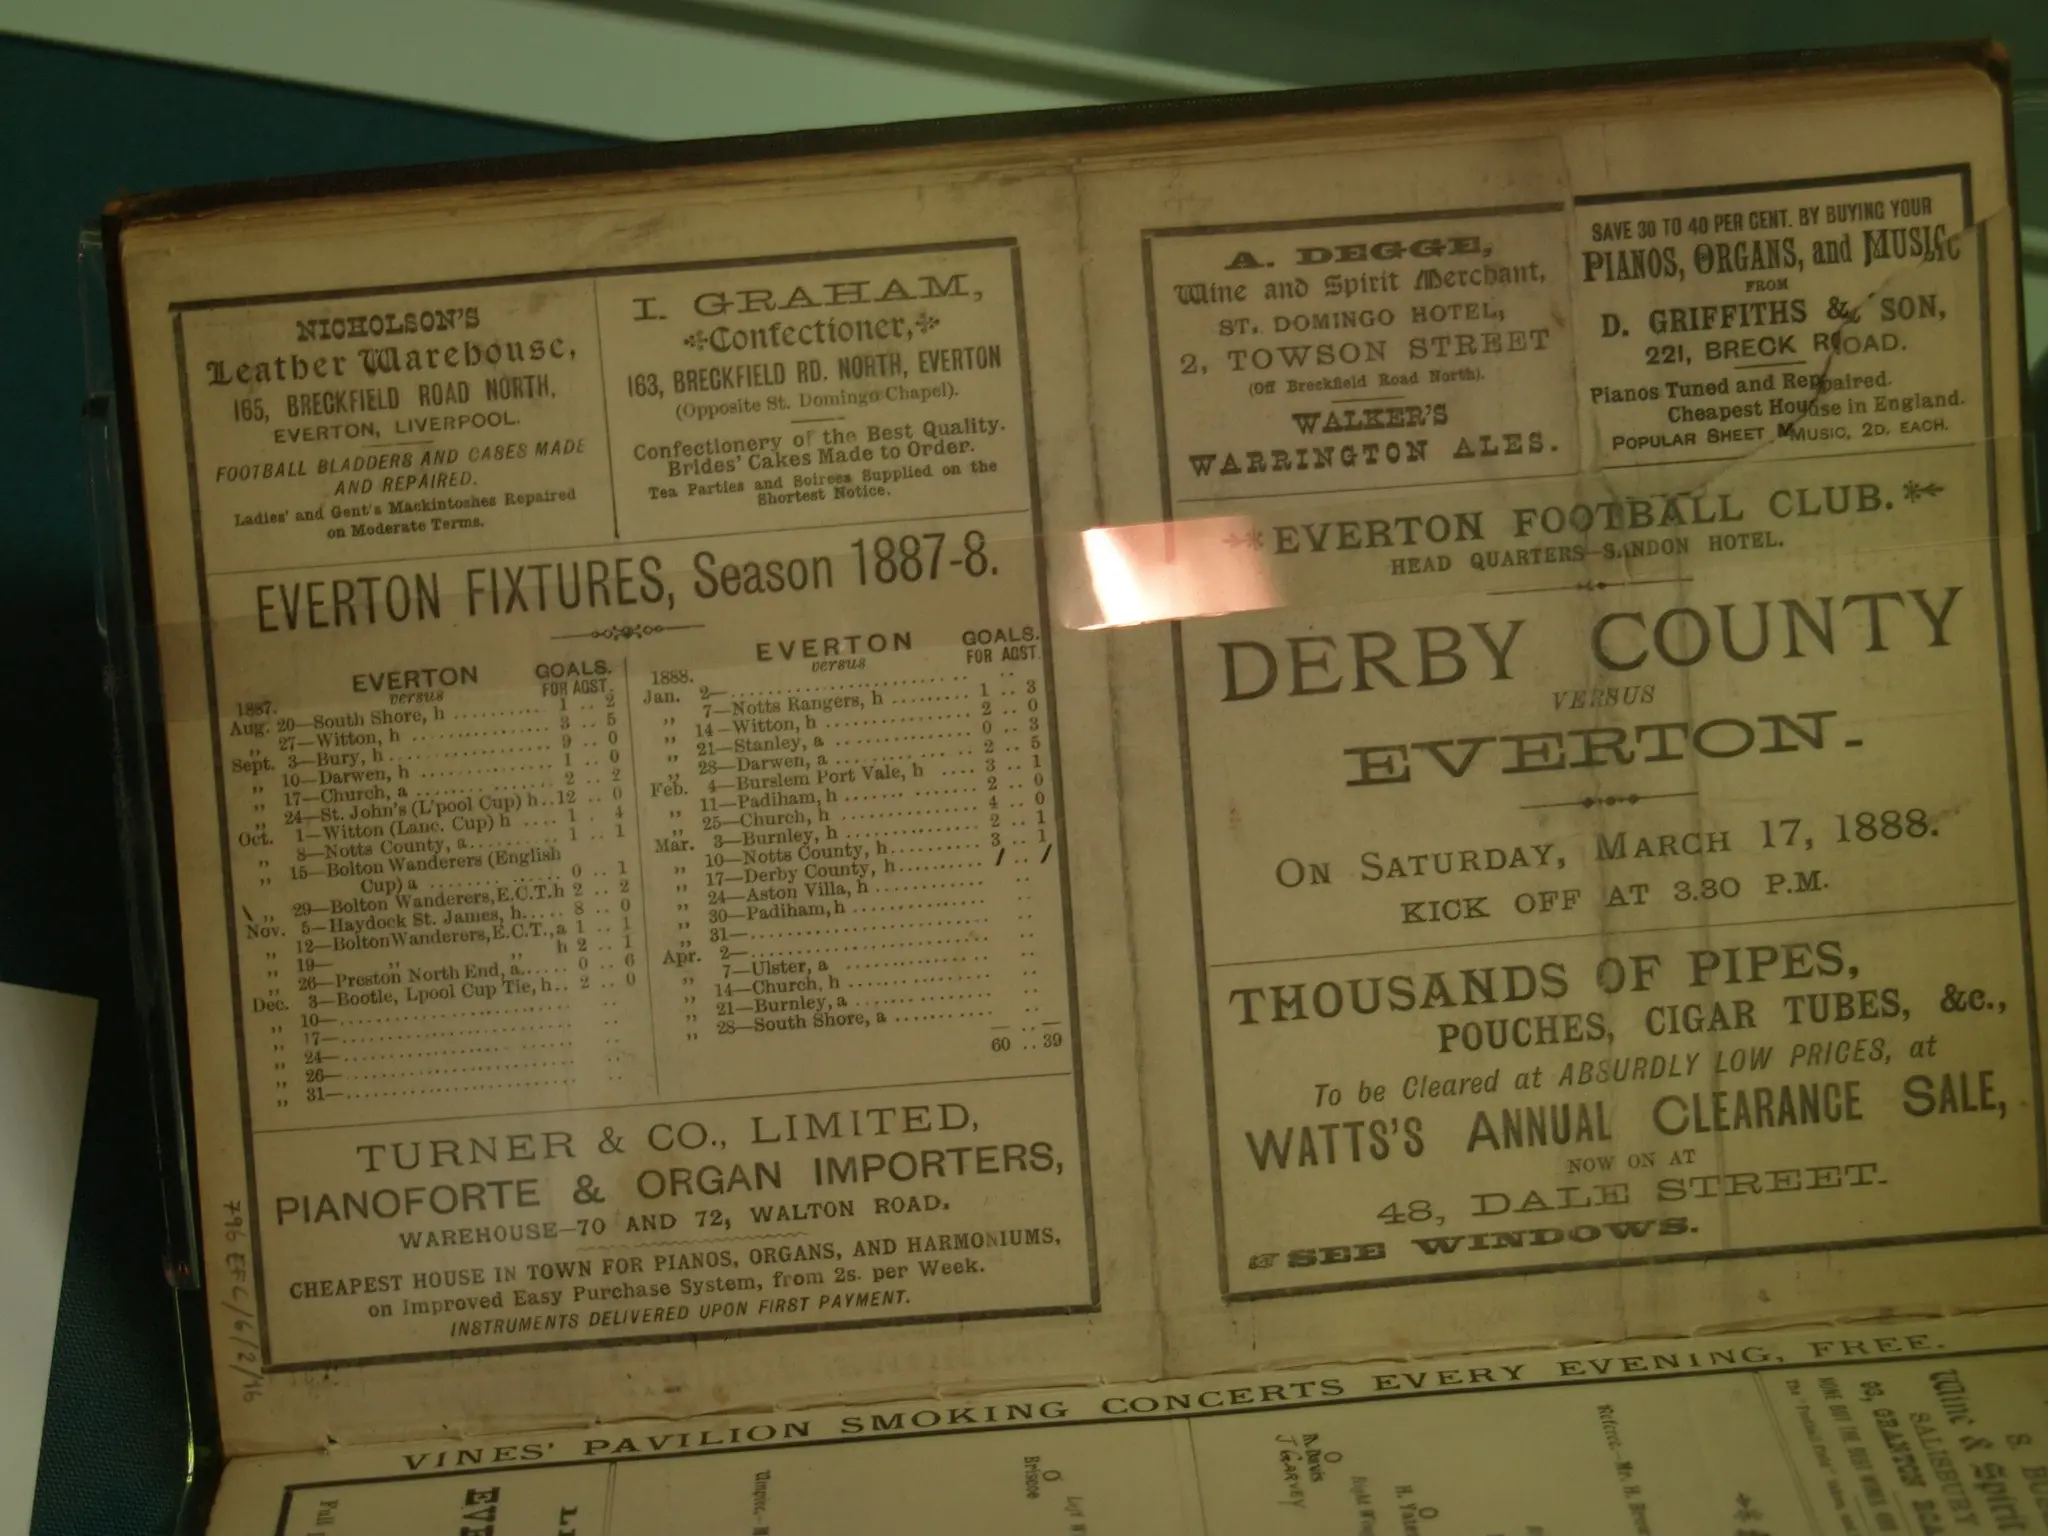 NICHOLSON'S
Leather Warehouse,
165, BRECKFIELD ROAD NORTH,
EVERTON, LIVERPOOL.
FOOTBALL BLADDERS AND CASES MADE
AND REPAIRED.
Ladies' and Gent's Mackintoshes Repaired
on Moderate Terms.
I. GRAHAM,
Confectioner,
163, BRECKFIELD RD. NORTH, EVERTON
(Opposite St. Domingo Chapel).
Confectionery of the Best Quality.
Brides' Cakes Made to Order.
Tea Parties and Soirees Supplied on the
Shortest Notice.
EVERTON FIXTURES, Season 1887-8.
EVERTON GOALS.
versus FOR AGST.
1887.
Aug. 20—South Shore, h .......... 1 .. 2
,, 27—Witton, h .......... 3 .. 5
Sept. 3—Bury, h .......... 9 .. 0
,, 10—Darwen, h .......... 1 .. 0
,, 17—Church, a .......... 2 .. 2
,, 24—St. John's (L'pool Cup) h..12 .. 0
Oct. 1—Witton (Lanc. Cup) h .... 1 . 4
,, 8—Notts County, a.......... 1 .. 1
,, 15—Bolton Wanderers (English
Cup) a .......... 0 .. 1
,, 29—Bolton Wanderers,E.C.T.h 2 .. 2
Nov. 5—Haydock St. James, h..... 8 .. 0
12—Bolton Wanderers,E.C.T.,a 1 .. 1
,, 19— ,, ,, h 2 .. 1
,, 26—Preston North End, a..... 0 .. 6
Dec. 3—Bootle, Lpool Cup Tie, h.. 2 .. 0
,, 10—.......... ..
,, 17—.......... ..
,, 24—.......... ..
,, 26—.......... ..
,, 31—.......... ..
EVERTON GOALS.
versus FOR AGST.
1888.
Jan. 2—.......... ..
,, 7—Notts Rangers, h .......... 1 .. 3
,, 14—Witton, h .......... 2 .. 0
,, 21—Stanley, a .......... 0 .. 3
,, 28—Darwen, a .......... 2 .. 5
Feb. 4—Burslem Port Vale, h .... 3 .. 1
,, 11—Padiham, h .......... 2 .. 0
,, 25—Church, h .......... 4 .. 0
Mar. 3—Burnley, h .......... 2 .. 1
,, 10—Notts County, h.......... 3 .. 1
,, 17—Derby County, h.......... / .. /
,, 24—Aston Villa, h .......... ..
,, 30—Padiham, h .......... ..
,, 31—.......... ..
Apr. 2—.......... ..
,, 7—Ulster, a .......... ..
,, 14—Church, h .......... ..
,, 21—Burnley, a .......... ..
,, 28—South Shore, a .......... ..
60 .. 39
TURNER & CO., LIMITED,
PIANOFORTE & ORGAN IMPORTERS,
WAREHOUSE—70 AND 72, WALTON ROAD.
CHEAPEST HOUSE IN TOWN FOR PIANOS, ORGANS, AND HARMONIUMS,
on Improved Easy Purchase System, from 2s. per Week.
INSTRUMENTS DELIVERED UPON FIRST PAYMENT.
796 EFC/6/2/16
A. DEGGE,
Wine and Spirit Merchant,
ST. DOMINGO HOTEL,
2, TOWSON STREET
(Off Breckfield Road North).
WALKER'S
WARRINGTON ALES.
SAVE 30 TO 40 PER CENT. BY BUYING YOUR
PIANOS, ORGANS, and MUSIC
FROM
D. GRIFFITHS & SON,
221, BRECK ROAD.
Pianos Tuned and Repaired.
Cheapest House in England.
POPULAR SHEET MUSIC, 2D. EACH.
EVERTON FOOTBALL CLUB.
HEAD QUARTERS—SANDON HOTEL.
DERBY COUNTY
VERSUS
EVERTON.
ON SATURDAY, MARCH 17, 1888.
KICK OFF AT 3.30 P.M.
THOUSANDS OF PIPES,
POUCHES, CIGAR TUBES, &c.,
To be Cleared at ABSURDLY LOW PRICES, at
WATTS'S ANNUAL CLEARANCE SALE,
NOW ON AT
48, DALE STREET.
SEE WINDOWS.
VINES' PAVILION SMOKING CONCERTS EVERY EVENING, FREE.
Full
EVE
Umpire.—
Briscoe
Left W
A. Davis
J GARVEY
Right Wing
H. Yates
Referee.—Mr. H.
The
NONE BUT THE BEST
93, GRANTON ROAD
SALISBURY
Wine & Spirit
S.